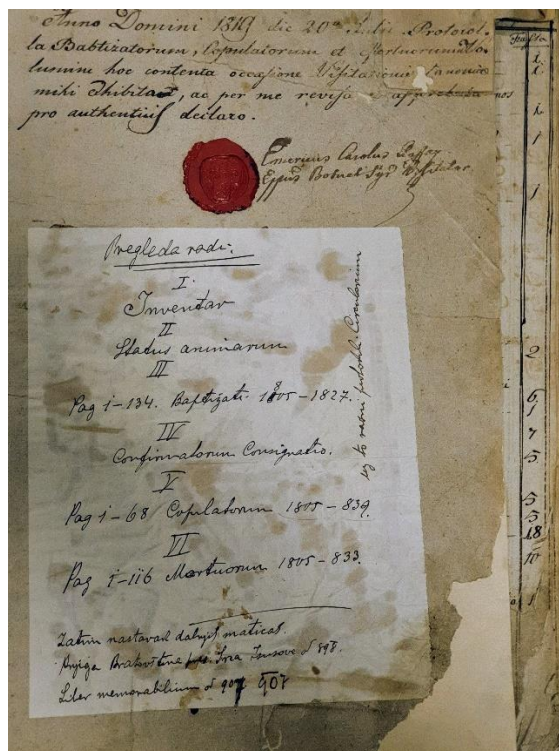 Anno Domini 1819 die 20ª Julii Protocol-
la Babtizatorum, Copulatorum et Mortuorum Vo-
lumini hoc contenta occasione Visitationis Canonicæ
mihi Exhibita, ac per me revisa et approbata
pro authentiis declaro.
Emericus Carolus
Eppus
Pregleda radi:
I.
Inventar
II
Status animarum
III
Pag 1-134. Baptizati 1805-1827.
IV
Confirmatorum Consignatio.
V
Pag 1-68 Copulatorum 1805-839.
VI
Pag 1-116 Mortuorum 1805-833.
uz to razni protokli Circularium
Zatim nastavak daljnjih maticas.
Knjiga Bratovštine Srca Isusova od 898.
Liber memorabilium od 907 907
2
6
1
7
5
5
5
18
10